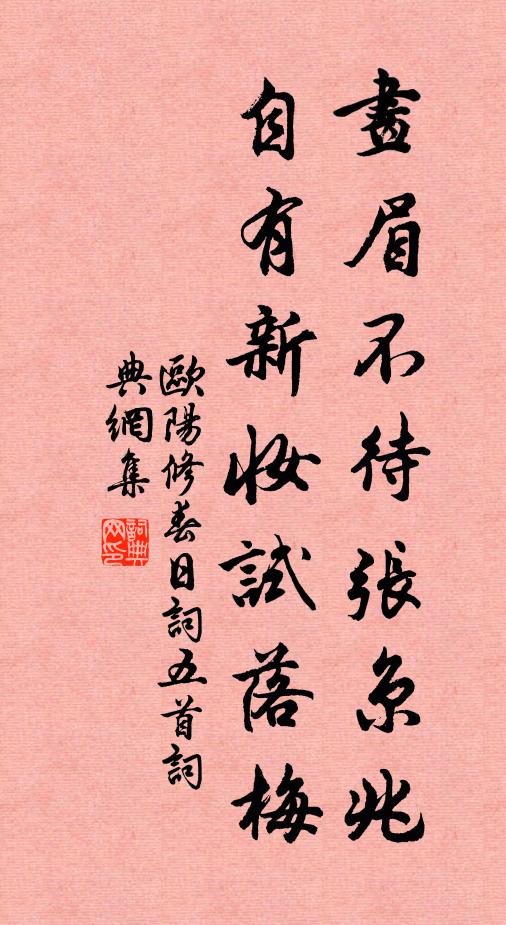 畫眉不待張京兆
自有新妝試落梅
歐陽修春日詞五首詞
典網集
詞典網印